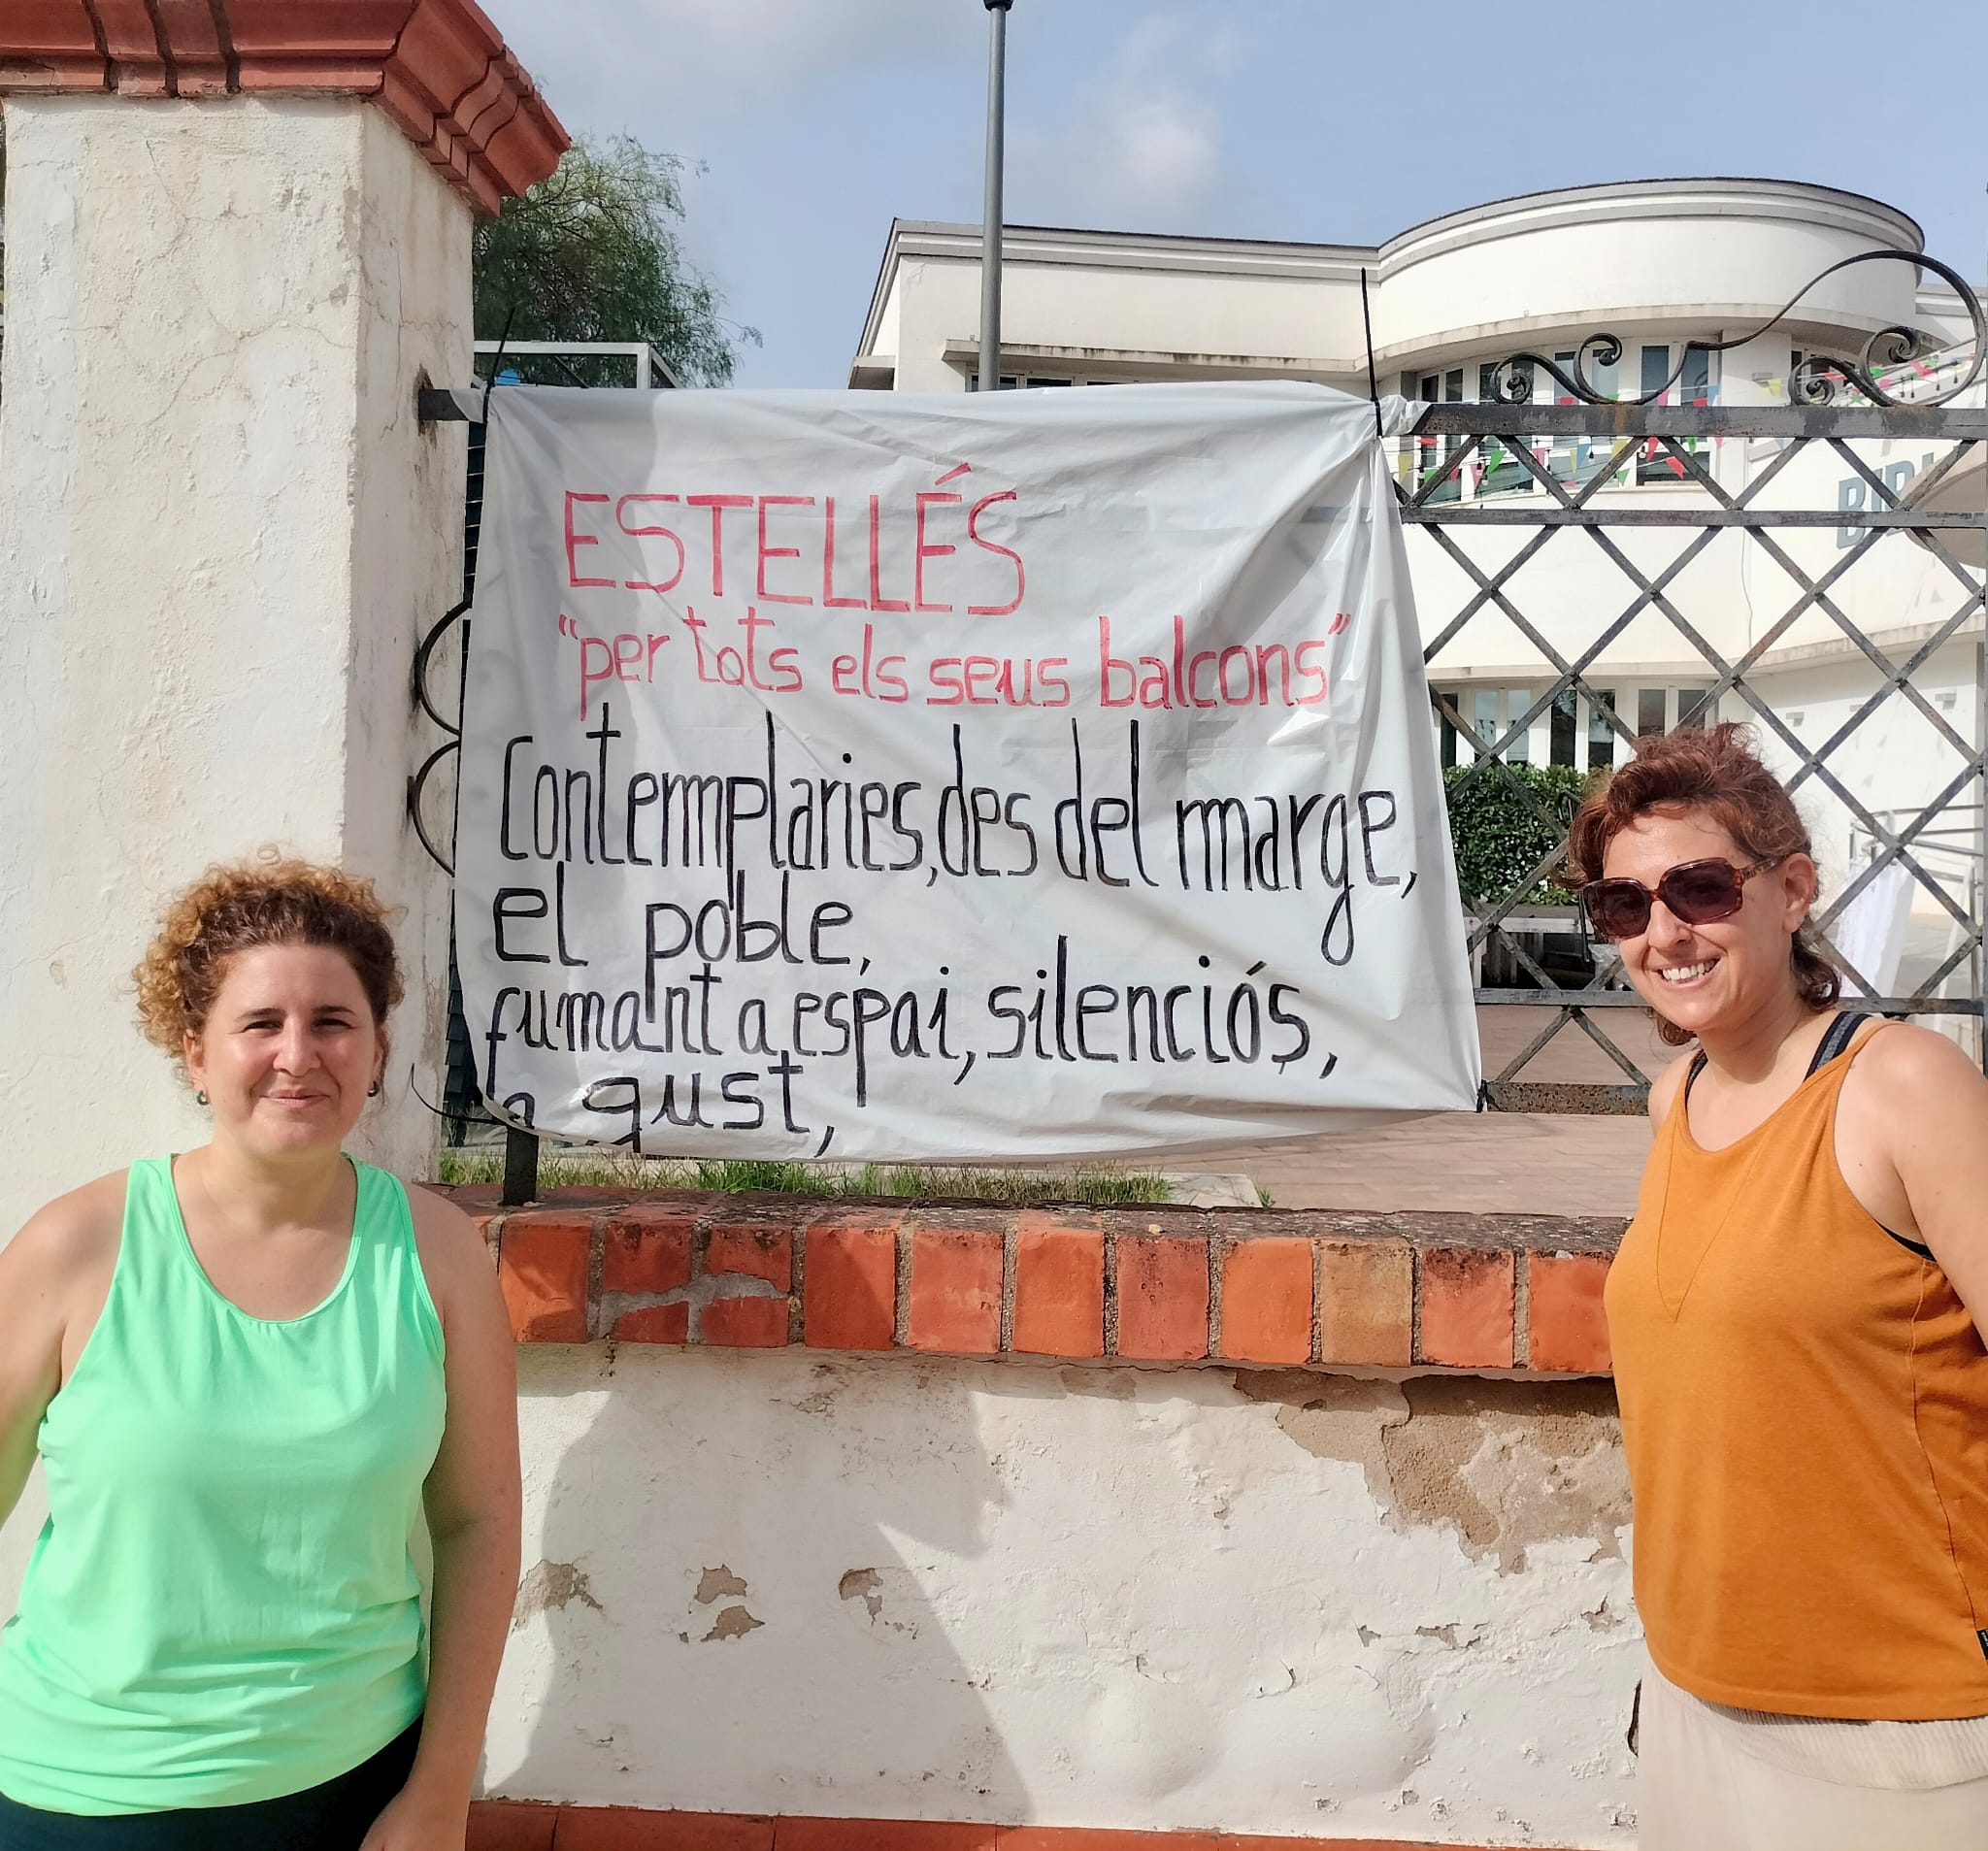 ESTELLÉS
"per tots els seus balcons"
Contemplaries, des del marge,
el poble,
fumant a espai, silenciós,
a gust,